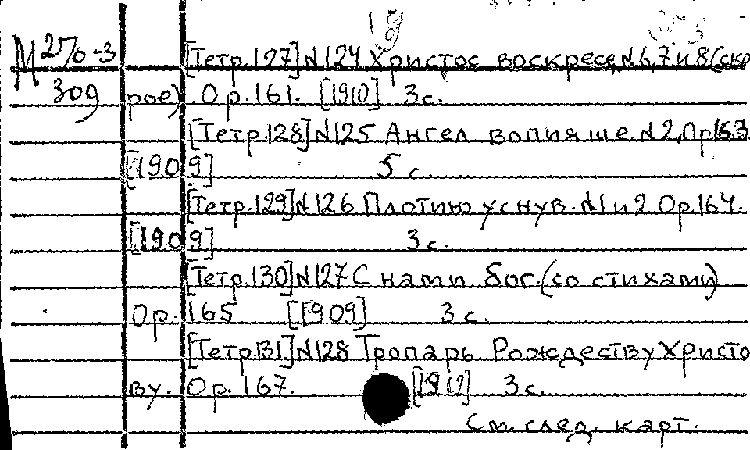 19
М 270-3 [Тетр. 127] N124 Христос воскресе, N6, 7 и 8 (ско
309 рое) Ор. 161. [1910] 3 с.
[Тетр. 128] N125 Ангел вопияше N2, Ор 163
[1909] 5 с.
[Тетр. 129] N126 Плотию уснув. N1 и 2 Ор. 164.
[1909] 3 с.
[Тетр. 130] N127 С нами бог. (со стихами)
Ор. 165 [1909] 3 с.
[Тетр 131] N128 Тропарь Рождеству Христо
ву. Ор. 167. 3 с.
См. след. карт.